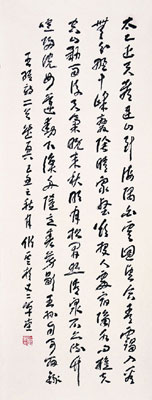 太乙近天都連山到海隅白雲回望合青靄入看
無分野中峰變陰晴眾壑殊欲投人處宿隔水問樵夫
空山新雨後天氣晚來秋明月松間照清泉石上流竹
喧歸浣女蓮動下漁舟隨意春芳歇王孫自可留錄
王維詩二首 乙丑之秋月